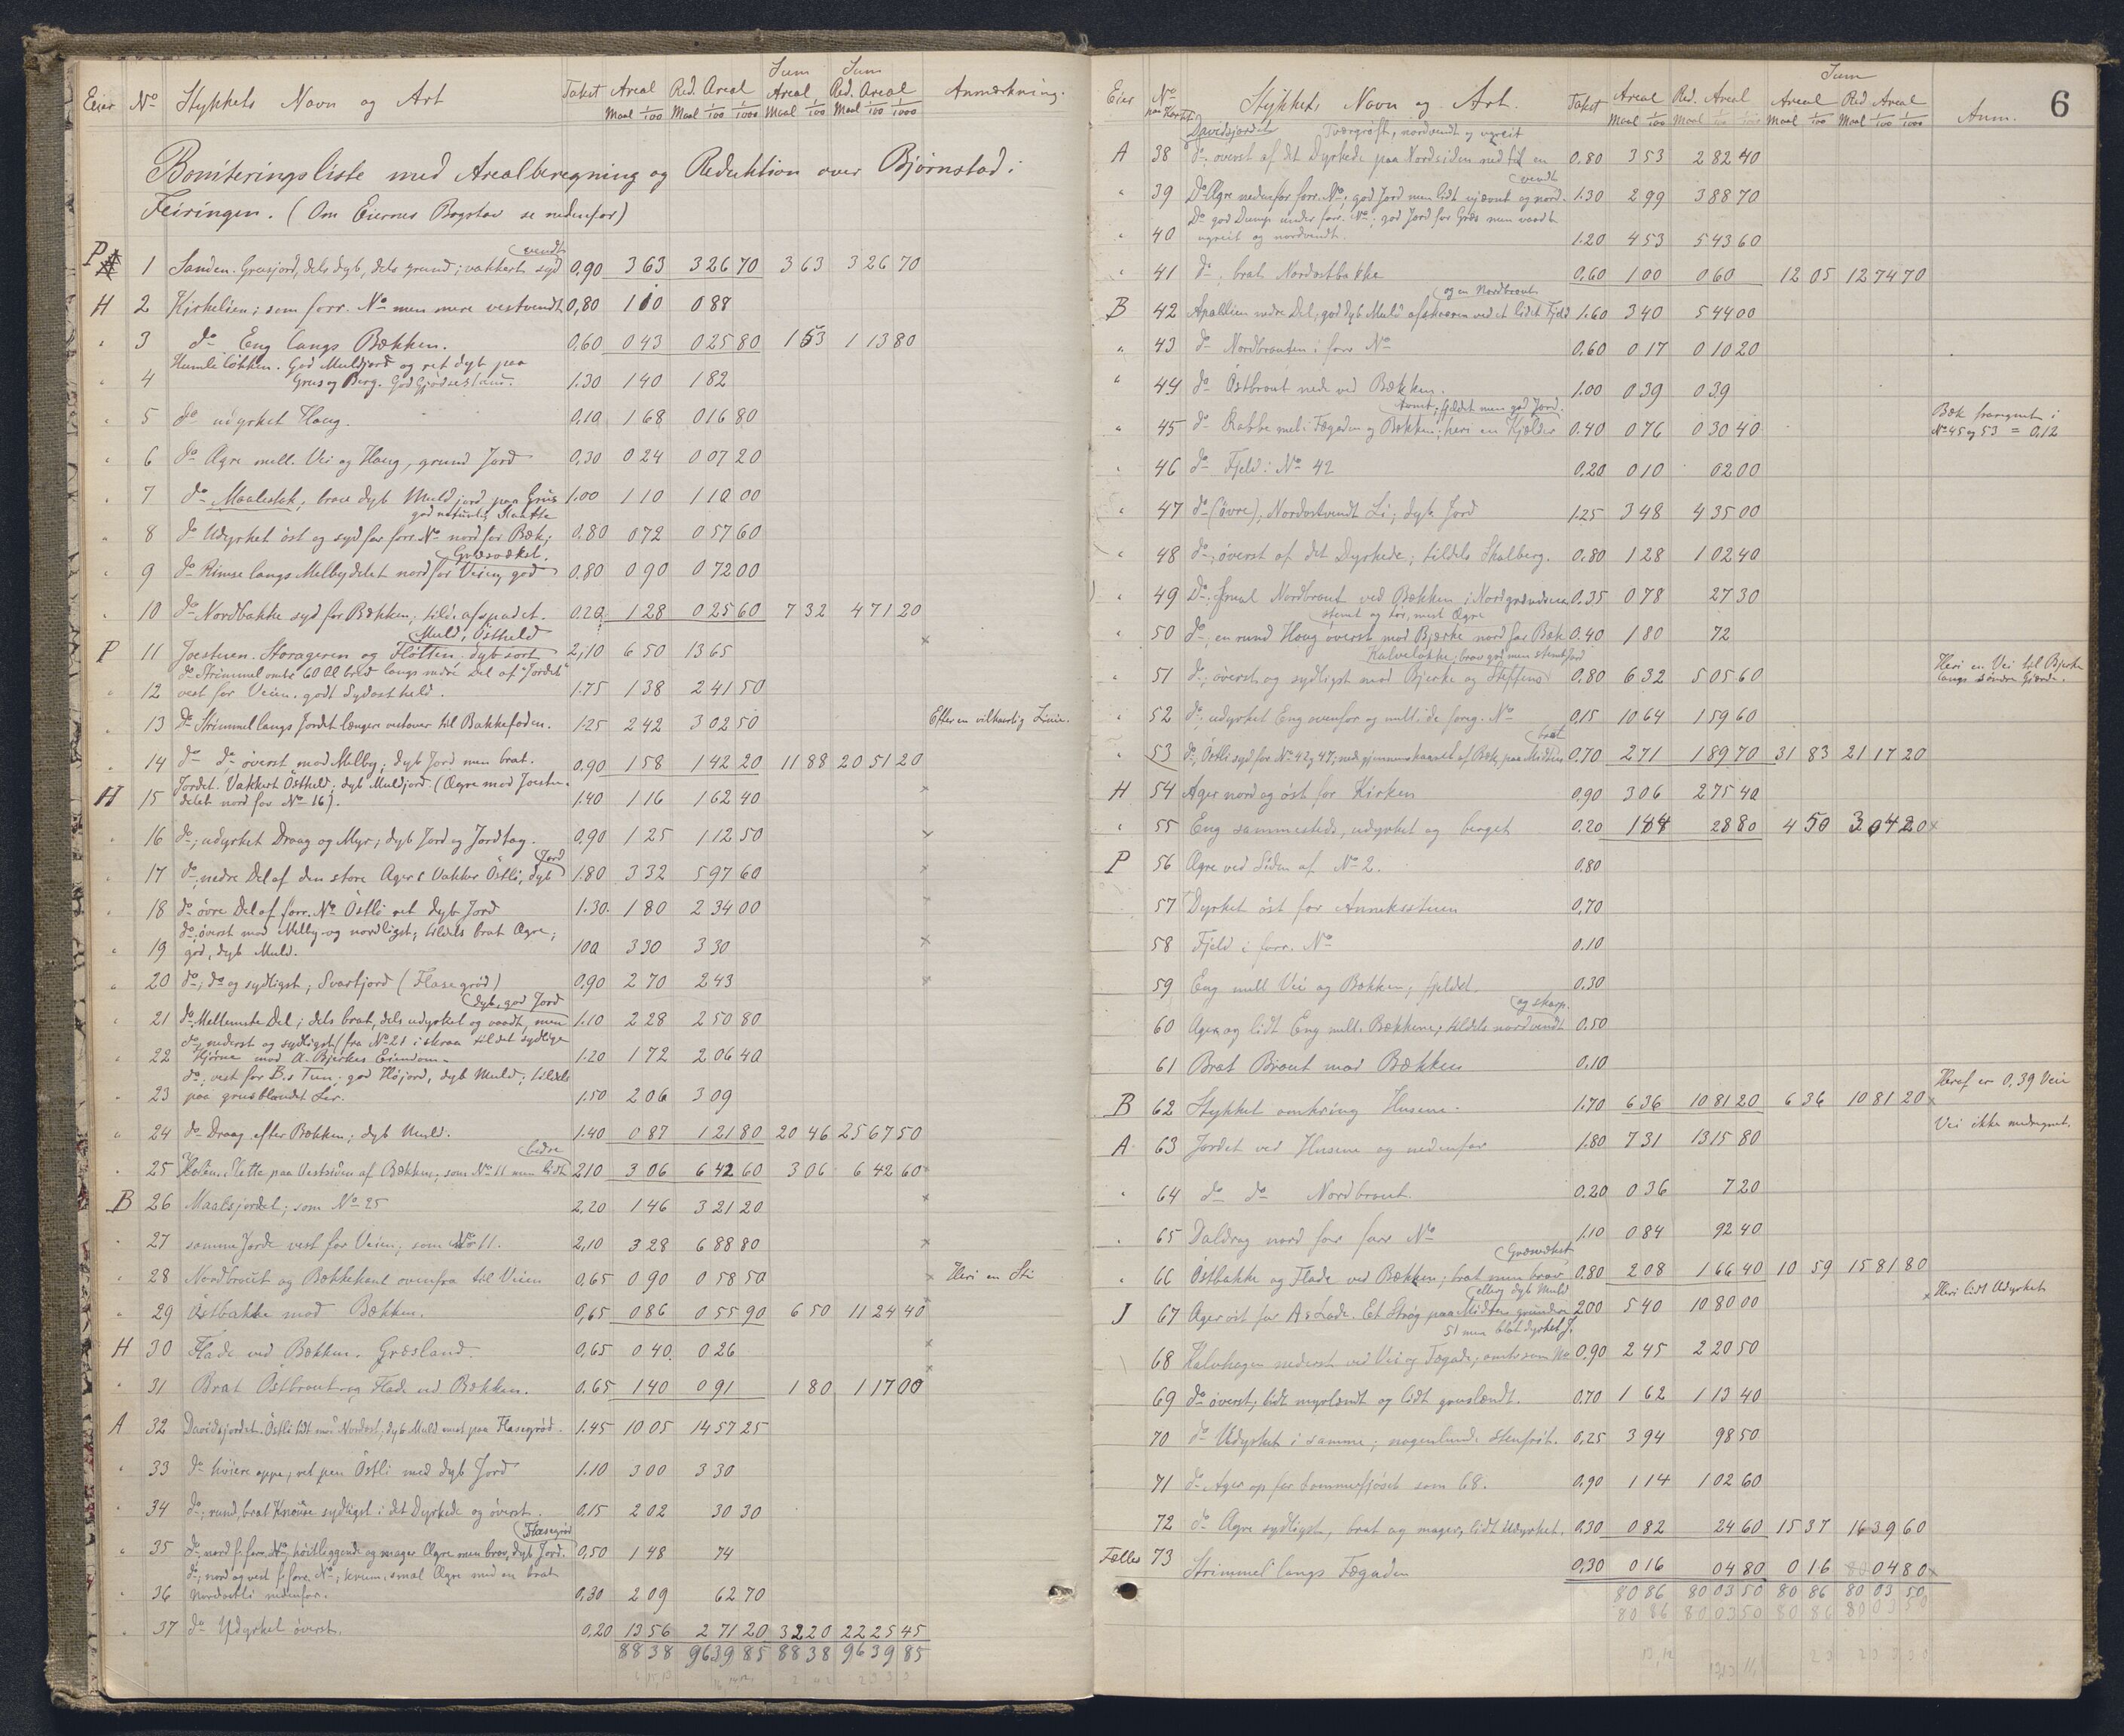 Sum Sum
Eier No Stykkets Navn og Art Takst Areal Red. Areal Areal Red. Areal Anmærkning.
Maal 1/100 Maal 1/100 1/1000 Maal 1/100 Maal 1/100 1/1000
Boniteringsliste med Arealberegning og Reduktion over Bjørnstad i
Feiringen. (Om Eiernes Bogstav se nedenfor)
vendt
P 1 Sanden. Grusjord, dels dyb, dels grund; vakkert syd 0,90 3 63 3 26 70 3 63 3 26 70
H 2 Kirkelien; som forr. No men mere vestvendt 0,80 1 10 0 88
" 3 do Eng langs Bækken. 0,60 0 43 0 25 80 1 53 1 13 80
Humleløkken. God Muldjord og ret dyb paa
" 4 Grus og Berg. 1.30 1 40 1 82
" 5 do udyrket Haug. 0,10 1 68 0 16 80
" 6 do Agre mell. Vei og Haug, grund Jord 0,30 0 24 0 07 20
" 7 do Maalestok, brav dyb Muldjord paa Grus 1.00 1 10 1 10 00
god naturlig
" 8 do Udyrket øst og syd for forr. No nord for Bæk; 0.80 0 72 0 57 60
Græsvækst.
" 9 do Rimse langs Melbydelet nord for Veien, god 0.80 0 90 0 72 00
" 10 do Nordbakke syd for Bækken; tild. afspadet. 0.20 1 28 0 25 60 7 32 4 71 20
Muld, Østheld
P 11 Joestuen. Storageren og Fløtten. dyb sort 2,10 6 50 13 65 x
do Strimmel omtr 60 Al bred langs nedre Del af "Jordet"
" 12 vest for Veien. godt Sydostheld. 1.75 1 38 2 41 50
" 13 do Strimmel langs Jordet længere vestover til Bakkefoden. 1.25 2 42 3 02 50 Efter en vilkaarlig Linie.
" 14 do do øverst mod Melby; dyb Jord men brat. 0,90 1 58 1 42 20 11 88 20 51 20
Jordet. Vakkert Østheld; dyb Muldjord. (Agre mod Joestu-
H 15 delet nord for No 16). 1.40 1 16 1 62 40 x
" 16 do; udyrket Draag og Myr; dyb Jord og Jordtag. 0,90 1 25 1 12 50 x
Jord
" 17 do, nedre Del af den store Ager. Vakker Østli, dyb 1.80 3 32 5 97 60 x
" 18 do øvre Del af forr. No Østli ret dyb Jord 1.30. 1 80 2 34 00
do, øverst mod Melby og nordligst; tildels brat Agre;
" 19 god, dyb Muld. 100 3 30 3 30 x
" 20 do; do og sydligst, Svartjord (Flasegrød) 0,90 2 70 2 43 x
dyb, god Jord
" 21 do Mellemste Del; dels brat, dels udyrket og vaadt, men 1.10 2 28 2 50 80
do, nederst og sydligst fra No 21 i skraa til det sydlige
" 22 Hjørne mod A. Bjerkes Eiendom. 1.20 1 72 2 06 40
do; vest for B.s Tun; god Høijord, dyb Muld; tildels
" 23 paa grusblandet Ler. 1.50 2 06 3 09
" 24 do Draag efter Bækken; dyb Muld. 1.40 0 87 1 21 80 20 46 25 67 50
bedre
" 25 Holen. Slette paa Vestsiden af Bækken; som No 11 men lidt 2.10 3 06 6 42 60 3 06 6 42 60 x
B 26 Maalsjordet; som No 25 2.20 1 46 3 21 20 x
" 27 samme Jorde vest for Veien; som No 11. 2,10 3 28 6 88 80 x
" 28 Nordbraut og Bækkekant ovenfra til Veien 0,65 0 90 0 58 50 x Heri en Sti
" 29 Østbakke mod Bækken. 0,65 0 86 0 55 90 6 50 11 24 40 x
H 30 Flade ved Bækken. Græsland. 0,65 0 40. 0 26 x
" 31 Brat Østbraut og Flade ved Bækken. 0.65 1 40 0 91 1 80 1 17 00 x
A 32 Davidsjordet. Østli lidt mod Nordost; dyb Muld mest paa Flasegrød. 1.45 10 05 14 57 25
" 33 do høiere oppe; ret pen Østli med dyb Jord 1.10 3 00 3 30
" 34 do; rund, brat Knause sydligst i det Dyrkede og øverst. 0,15 2 02 30 30
Flasegrød
" 35 do, nord f. forr. No; høitliggende og mager Agre men brav, dyb Jord. 0,50 1 48 74
do, nord og vest f. forr. No; krum, smal Agre med en brat
" 36 Nordostli nedenfor. 0,30 2 09 62 70
" 37 do Udyrket øverst. 0,20 13 56 2 71 20 32 20 22 25 45
88 38 96 39 85 88 38 96 39 85
Sum 6
Eier No paa Kartet Stykkets Navn og Art. Takst Areal Red. Areal Areal Red Areal Anm.
Maal 1/100 Maal 1/100 1/1000 Maal 1/100 Maal 1/100 1/1000
Davidsjordet Tværgrøft, nordvendt og ugreit
A 38 do. øverst af det Dyrkede paa Nordsiden ned til en 0.80 3 53 2 82 40
vendt
" 39 Do Agre nedenfor forr. No; god Jord men lidt ujævnt og nord- 1.30 2 99 3 88 70
Do god Dump under forr. No; god Jord for Græs men vaadt
" 40 ugreit og nordvendt. 1.20 4 53 5 43 60
" 41 do; brat Nordostbakke 0.60 1 00 0 60 12 05 12 74 70
og en Nordbraut
B 42 Apallien nedre Del; god dyb Muld afskaaren ved et lidet Fjeld 1.60 3 40 5 44 00
" 43 do Nordbrauten i forr No 0.60 0 17 0 10 20
" 44 do Østbraut nede ved Bækken. 1.00 0 39 0 39
fjeldet men god Jord.
" 45 do Rabbe mel. Fægaden og Bækken; heri en Kjelder 0.40 0 76 0 30 40 Bæk fraregnet i
No 45 og 53 = 0,12
" 46 do Fjeld i No 42 0.20 0 10 02 00
" 47 do (øvre); Nordostvendt Li; dyb Jord 1.25 3 48 4 35 00
" 48 do; øverst af det Dyrkede; tildels Skalberg. 0.80 1 28 1 02 40
" 49 Do. smal Nordbraut ved Bækken i Nordgrændsen 0.35 0 78 27 30
stenet og tør, mest Agre
" 50 do; en rund Haug øverst mod Bjerke nord for Bæk 0.40 1 80 72
Kalveløkke; brav god men stenet Jord
" 51 do; øverst og sydligst mod Bjerke og Steffens 0,80 6 32 5 05 60 Heri en Vei til Bjerke
langs søndre Gjærde.
" 52 do; udyrket Eng ovenfor og mell. de foreg. No 0,15 10 64 1 59 60
brat
" 53 do, Østli syd for No 42 og 47; nedr gjennemskaaret af Bæk paa Midten 0.70 2 71 1 89 70 31 83 21 17 20
H 54 Ager nord og øst for Kirken 0,90 3 06 2 75 40
" 55 Eng sammesteds, udyrket og berget 0.20 1 44 28 80 4 50 3 04 20 x
P 56 Agre ved Siden af No 2. 0.80
57 Dyrket øst for Anneksstuen 0,70
58 Fjeld i forr. No 0.10
59 Eng mell Vei og Bækken; fjeldet. 0.30
og skarp.
60 Ager og lidt Eng mell. Bækkene; tildels nordvendt 0.50
61 Brat Braut mod Bækken 0,10
Heraf er 0,39 Vei
B 62 Stykket omkring Husene. 1.70 6 36 10 81 20 6 36 10 81 20 x
Vei ikke medregnet.
A 63 Jordet ved Husene og nedenfor 1.80 7 31 13 15 80
" 64 do do Nordbraut. 0.20 0 36 7 20
" 65 Daldrag nord for forr No 1.10 0 84 92 40
Græsvækst
" 66 Østbakke og Flade ved Bækken; brat men brav 0.80 2 08 1 66 40 10 59 15 81 80
ellers dyb Muld x Heri lidt Udyrket
J 67 Ager øst for A's Lade. Et Strøg paa Midten grundere 2.00 5 40 10 80 00
51 men blot dyrket J.
68 Kalvhagen nederst ved Vei og Fægade; omtr som No 0,90 2 45 2 20 50
69 do øverst; lidt myrlændt og lidt gruslændt. 0.70 1 62 1 13 40
70 do Udyrket i samme; nogenlunde stenfrit. 0,25 3 94 98 50
71 do Ager op for Sommerfjøset som 68. 0,90 1 14 1 02 60
72 do Agre sydligst, brat og mager, lidt Udyrket. 0,30 0 82 24 60 15 37 16 39 60
Fælles 73 Strimmel langs Fægaden 0,30 0 16 04 80 0 16 04 80 x
80 86 80 03 50 80 86 80 03 50
80 86 80 03 50 80 86 80 03 50